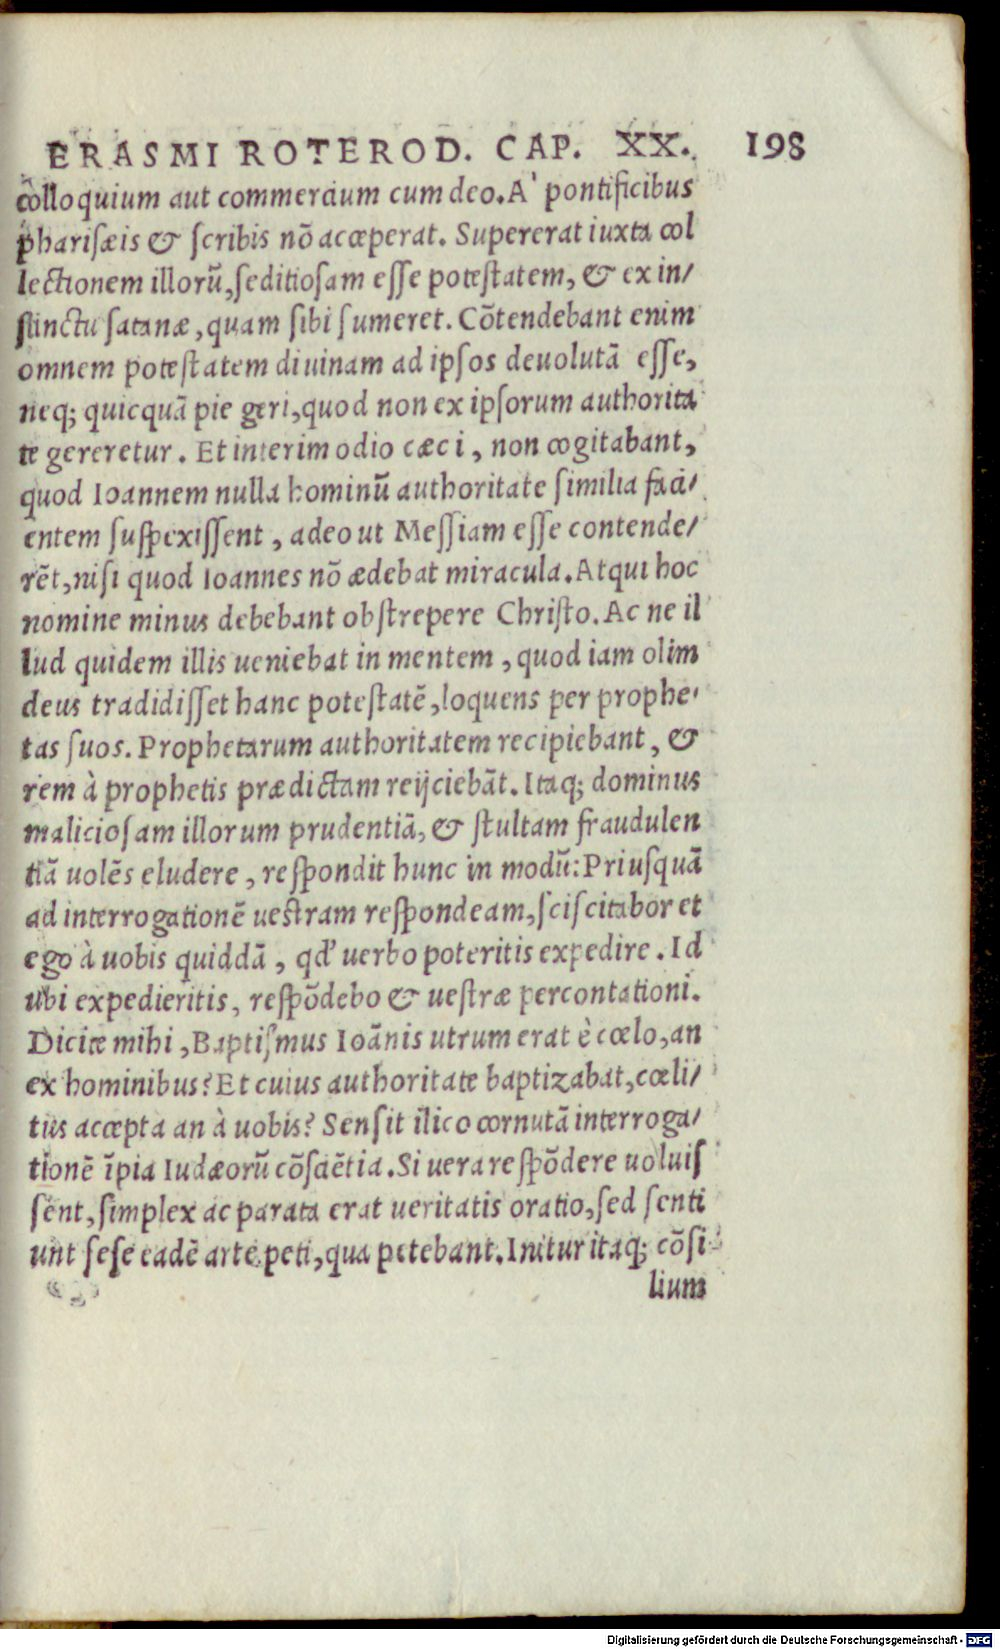 ERASMI ROTEROD. CAP. XX. 198
colloquium aut commercium cum deo. A' pontificibus
pharisæis & scribis nõ acceperat. Supererat iuxta col
lectionem illorũ, seditiosam esse potestatem, & ex in/
stinctu satanæ, quam sibi sumeret. Cõtendebant enim
omnem potestatem diuinam ad ipsos deuolutã esse,
neq; quicquã pie geri, quod non ex ipsorum authorita
te gereretur. Et interim odio cæci, non cogitabant,
quod Ioannem nulla hominũ authoritate similia faci/
entem suspexissent, adeo ut Messiam esse contende/
rẽt, nisi quod Ioannes nõ ædebat miracula. Atqui hoc
nomine minus debebant obstrepere Christo. Ac ne il
lud quidem illis ueniebat in mentem, quod iam olim
deus tradidisset hanc potestatẽ, loquens per prophe/
tas suos. Prophetarum authoritatem recipiebant, &
rem à prophetis prædictam reijciebãt. Itaq; dominus
maliciosam illorum prudentiã, & stultam fraudulen
tiã uolẽs eludere, respondit hunc in modũ: Priusquã
ad interrogationẽ uestram respondeam, sciscitabor et
ego à uobis quiddã, qd' uerbo poteritis expedire. Id
ubi expedieritis, respõdebo & uestræ percontationi.
Dicite mihi, Baptismus Ioãnis utrum erat è cœlo, an
ex hominibus? Et cuius authoritate baptizabat, cœli/
tus accepta an à uobis? Sensit ilico cornutã interroga/
tionẽ ĩpia Iudæorũ cõsciẽtia. Si uera respõdere uoluis
sent, simplex ac parata erat ueritatis oratio, sed senti
unt sese eadẽ arte peti, qua petebant. Initur itaq; cõsi
lium
Digitalisierung gefördert durch die Deutsche Forschungsgemeinschaft - DFG